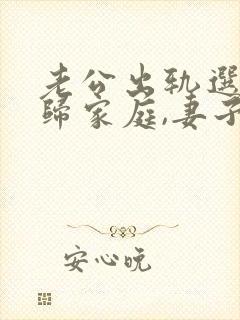 老公出轨選
歸家庭,妻子
安心晥